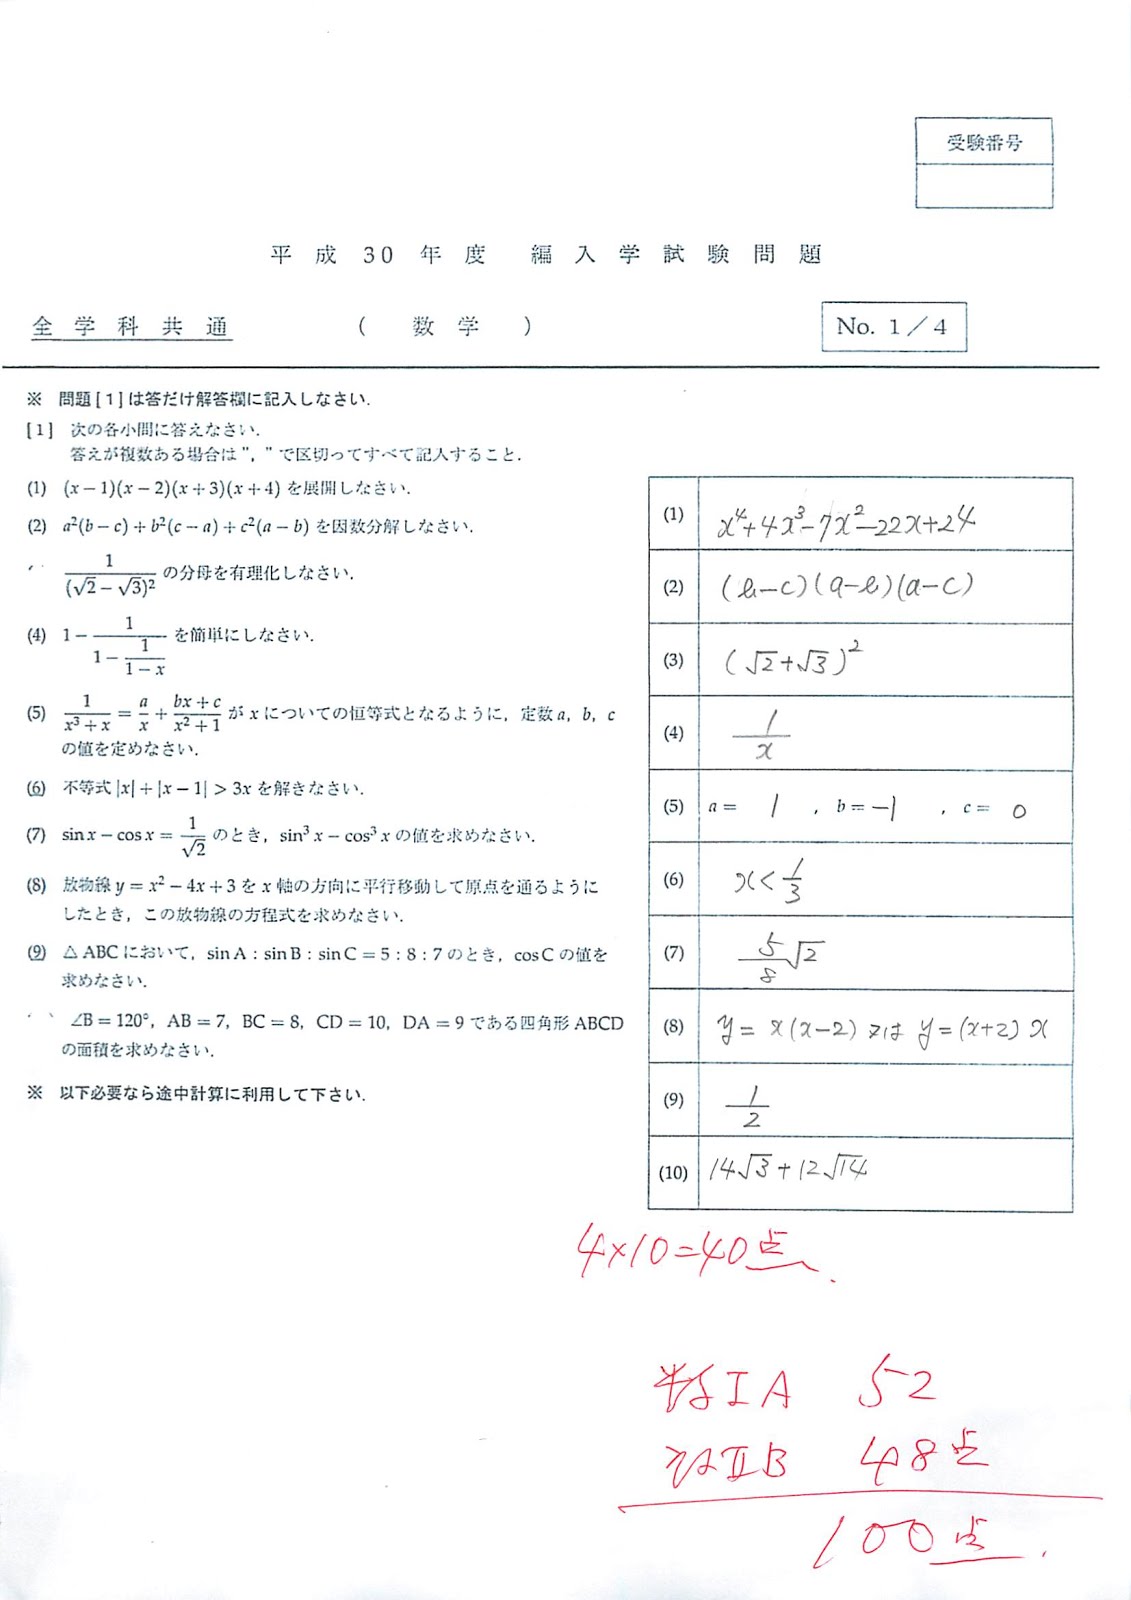 受験番号
平成 30 年度 編入学試験問題
全学科共通 ( 数学 ) No. 1／4
※ 問題[1]は答だけ解答欄に記入しなさい.
[1] 次の各小問に答えなさい.
答えが複数ある場合は ", " で区切ってすべて記入すること.
(1) (x－1)(x－2)(x＋3)(x＋4) を展開しなさい.
(2) a²(b－c)＋b²(c－a)＋c²(a－b) を因数分解しなさい.
1/(√2－√3)² の分母を有理化しなさい.
(4) 1－1/(1－1/(1－x)) を簡単にしなさい.
(5) 1/(x³＋x)＝a/x＋(bx＋c)/(x²＋1) が x についての恒等式となるように，定数 a，b，c
の値を定めなさい.
(6) 不等式 |x|＋|x－1|＞3x を解きなさい.
(7) sin x－cos x＝1/√2 のとき，sin³ x－cos³ x の値を求めなさい.
(8) 放物線 y＝x²－4x＋3 を x 軸の方向に平行移動して原点を通るように
したとき，この放物線の方程式を求めなさい.
(9) △ABC において，sin A : sin B : sin C＝5 : 8 : 7 のとき，cos C の値を
求めなさい.
∠B＝120°，AB＝7，BC＝8，CD＝10，DA＝9 である四角形 ABCD
の面積を求めなさい.
※ 以下必要なら途中計算に利用して下さい.
(1) x⁴+4x³-7x²-22x+24
(2) (b-c)(a-b)(a-c)
(3) (√2+√3)²
(4) 1/x
(5) a＝ 1 ，b＝-1 ，c＝ 0
(6) x<1/3
(7) 5/8√2
(8) y=x(x-2) 又は y=(x+2)x
(9) 1/2
(10) 14√3+12√14
4×10=40点.
数ⅠA 52
数ⅡB 48点
100点.